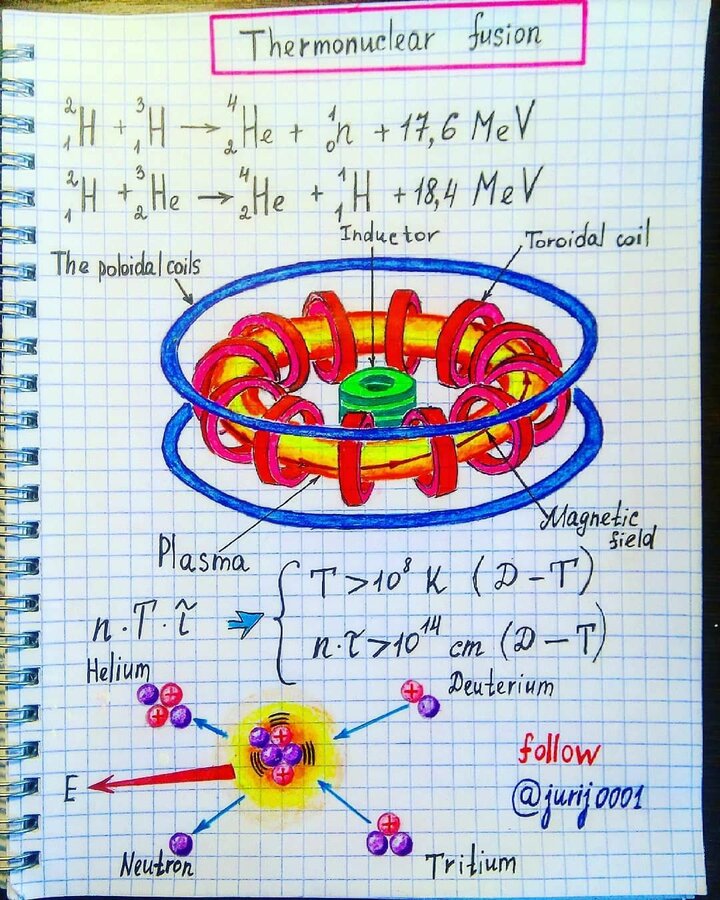 Thermonuclear fusion
²₁H + ³₁H → ⁴₂He + ¹₀n + 17,6 MeV
²₁H + ³₂He → ⁴₂He + ¹₁H + 18,4 MeV
Inductor
Toroidal coil
The poloidal coils
Magnetic
field
Plasma
T > 10⁸ K (D – T)
n · T · τ̃ ⇒ {
n · τ > 10¹⁴ cm (D – T)
Helium
Deuterium
follow
E
@jurij0001
Neutron
Tritium